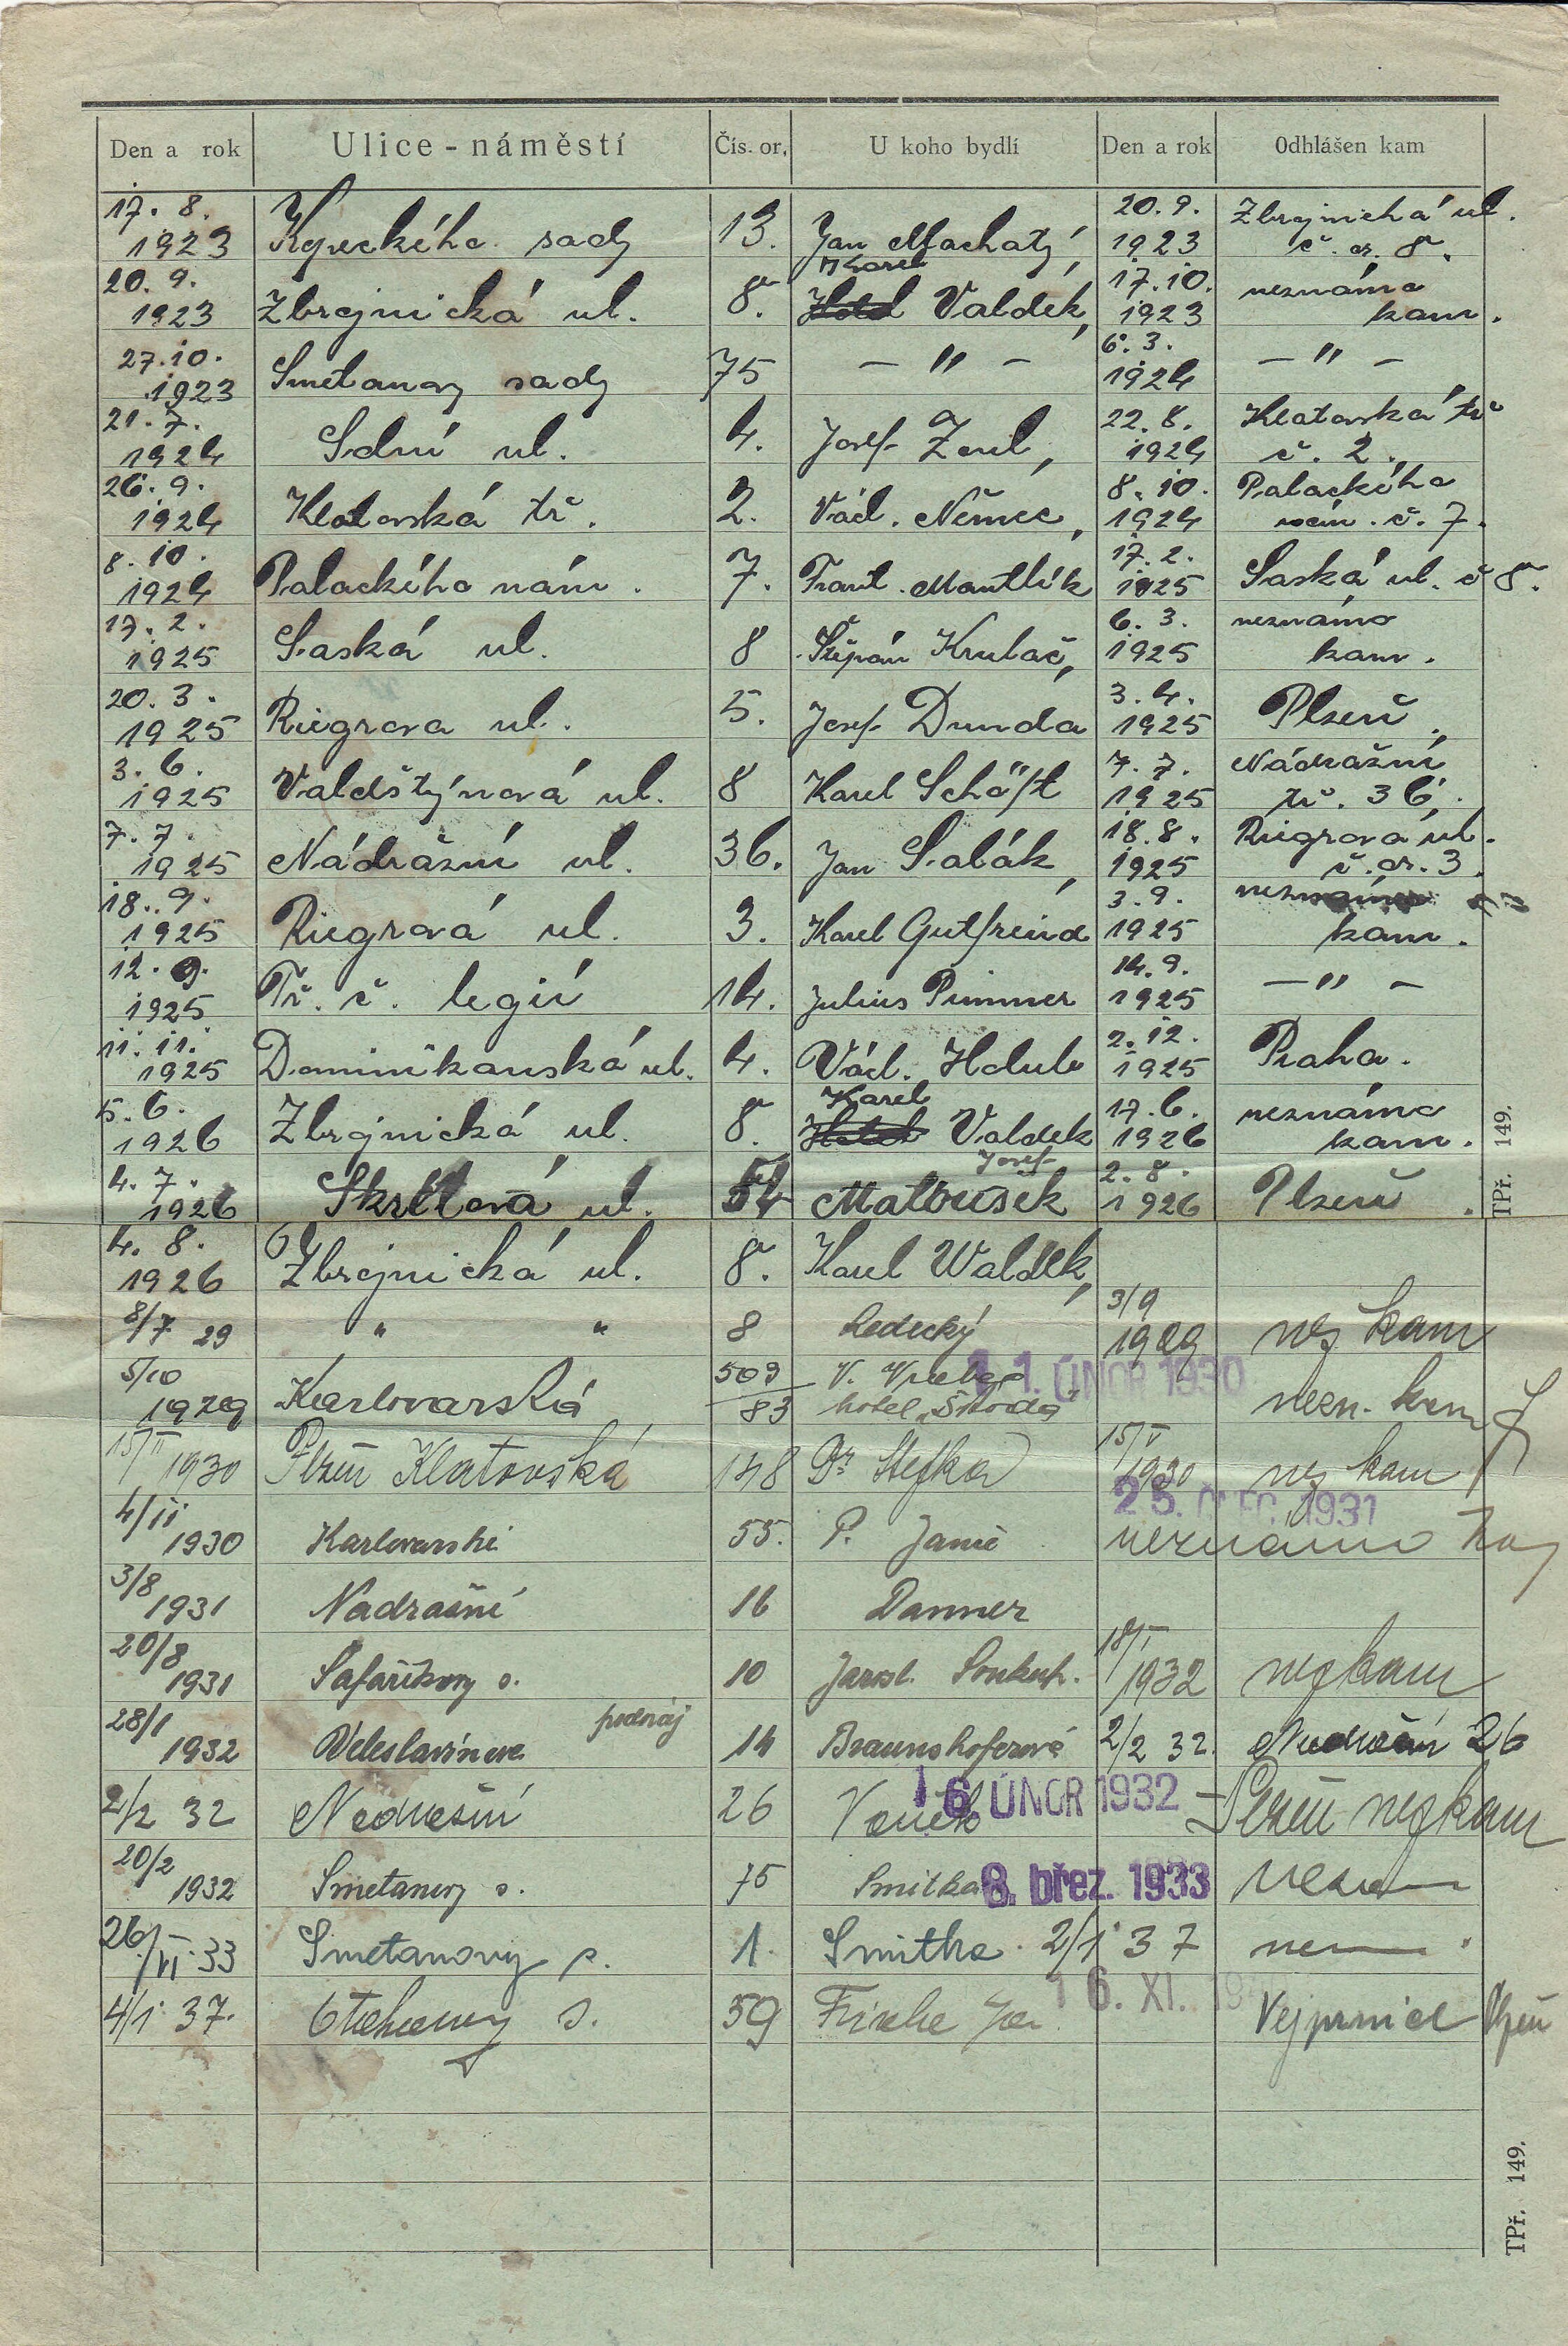 Den a rok Ulice - náměstí Čís. or. U koho bydlí Den a rok Odhlášen kam
17. 8. 1923 Kopeckého sady 13. Jan Machatý, 20. 9. 1923 Zbrojnická ul. č. or. 8.
20. 9. 1923 Zbrojnická ul. 8. Karel Valdek, 17. 10. 1923 neznámo kam.
27. 10. 1923 Smetanovy sady 75 — " — 6. 3. 1924 — " —
21. 7. 1924 Solní ul. 4. Josef 22. 8. 1924 Klatovská tř. č. 2.
26. 9. 1924 Klatovská tř. 2. Václ. Němec, 8. 10. 1924 Palackého nám. č. 7.
8. 10. 1924 Palackého nám. 7. Frant. Mantlík 17. 2. 1925 Saská ul. č 8.
17. 2. 1925 Saská ul. 8 Štěpán 6. 3. 1925 neznámo kam.
20. 3. 1925 Riegrova ul. 5. Josef Dunda 3. 4. 1925 Plzeň,
3. 6. 1925 Valdštýnová ul. 8 Karel Schöft 7. 7. 1925 Nádražní tř. 36.
7. 7. 1925 Nádražní ul. 36. Jan Salák, 18. 8. 1925 Riegrova ul. č. or. 3.
18. 9. 1925 Riegrová ul. 3. Karel Gutfreind 3. 9. 1925 neznámo kam.
12. 9. 1925 Tř. č. legií 14. Julius Pimmer 14. 9. 1925 — " —
11. 11. 1925 Dominikanská ul. 4. Václ. Holub 2. 12. 1925 Praha.
5. 6. 1926 Zbrojnická ul. 8. Karel Valdek 17. 6. 1926 neznámo kam.
4. 7. 1926 Skrétová ul. Josef Matoušek 2. 8. 1926 Plzeň.
TPř. 149.
4. 8. 1926 Zbrojnická ul. 8. Karel Waldek,
8/7 29 " " 8 Ledecký 3/9 1929 nez kam
5/10 1929 Karlovarská 509/83 V. hotel „Škoda" 11. ÚNOR 1930 nezn. kam
15/II 1930 Plzeň Klatovská 148 Dr 15/V 1930 nez kam
4/II 1930 Karlovarská 55. P. Janič 25. 1931 neznámo kam
3/8 1931 Nadražní 16 Danner
20/8 1931 Šafaříkovy s. 10 Jarosl. Soukup. 18/I 1932 nez kam
28/1 1932 Veleslavínova podnáj 14 Braunshoferová 2/2 32. Nadražní 26
2/2 32 Nadražní 26 16. ÚNOR 1932 Plzeň nez kam
20/2 1932 Smetanovy s. 75 Smitka 8. břez. 1933 nezn
26/VI 33 Smetanovy s. 1. Smitka 2/1 37
4/1 37. s. 59 16. XI. Vejprnice Plzeň
TPř. 149.